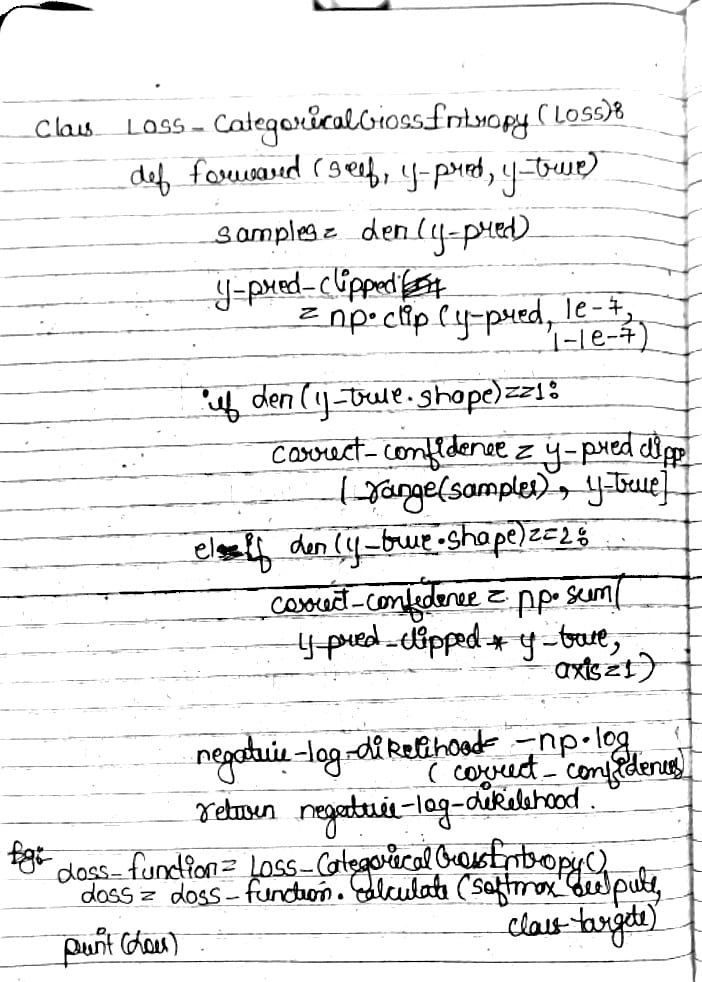 Class Loss_CategoricalCrossEntropy (Loss):
def forward (self, y-pred, y-true)
samples = len(y-pred)
y-pred-clipped
= np.clip (y-pred, 1e-7,
1-1e-7)
if len(y-true.shape)==1:
correct-confidence = y-pred clippe
[range(samples), y-true]
elif len(y-true.shape)==2:
correct-confidence = np.sum(
y-pred-clipped * y-true,
axis=1)
negative-log-likelihood= -np.log
(correct-confidences)
return negative-log-likelihood.
Eg:- loss-function= Loss-CategoricalCrossEntropy()
loss = loss-function.calculate (softmax outputs,
class-targets)
print (loss)